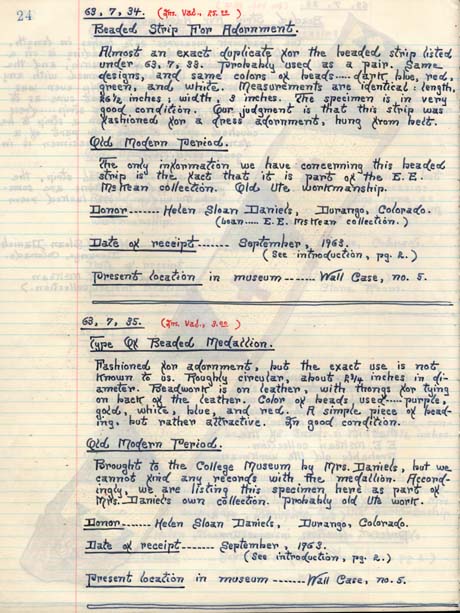 24
63, 7, 34. (Ins. Val., 25.00)
Beaded Strip For Adornment.
Almost an exact duplicate for the beaded strip listed
under 63, 7, 33. Probably used as a pair. Same
designs, and same colors of beads.....dark blue, red,
green, and white. Measurements are identical: length,
26½ inches; width, 3 inches. The specimen is in very
good condition. Our judgment is that this strip was
fashioned for a dress adornment, hung from belt.
Old Modern Period.
The only information we have concerning this beaded
strip is the fact that it is part of the E. E.
McKean collection. Old Ute workmanship.
Donor------- Helen Sloan Daniels, Durango, Colorado.
(Loan.... E. E. McKean collection.)
Date of receipt------- September, 1963.
(See introduction, pg. 2.)
Present location in museum -------- Wall Case, no. 5.
63, 7, 35. (Ins. Val., 3.00)
Type Of Beaded Medallion.
Fashioned for adornment, but the exact use is not
known to us. Roughly circular, about 2¾ inches in di-
ameter. Beadwork is on leather, with thongs for tying
on back of the leather. Color of beads used.....purple,
gold, white, blue, and red. A simple piece of bead-
ing, but rather attractive. In good condition.
Old Modern Period.
Brought to the College Museum by Mrs. Daniels, but we
cannot find any records with the medallion. Accord-
ingly, we are listing this specimen here as part of
Mrs. Daniel's own collection. Probably old Ute work.
Donor------- Helen Sloan Daniels, Durango, Colorado.
Date of receipt------- September, 1963.
(See introduction, pg. 2.)
Present location in museum ------- Wall Case, no. 5.